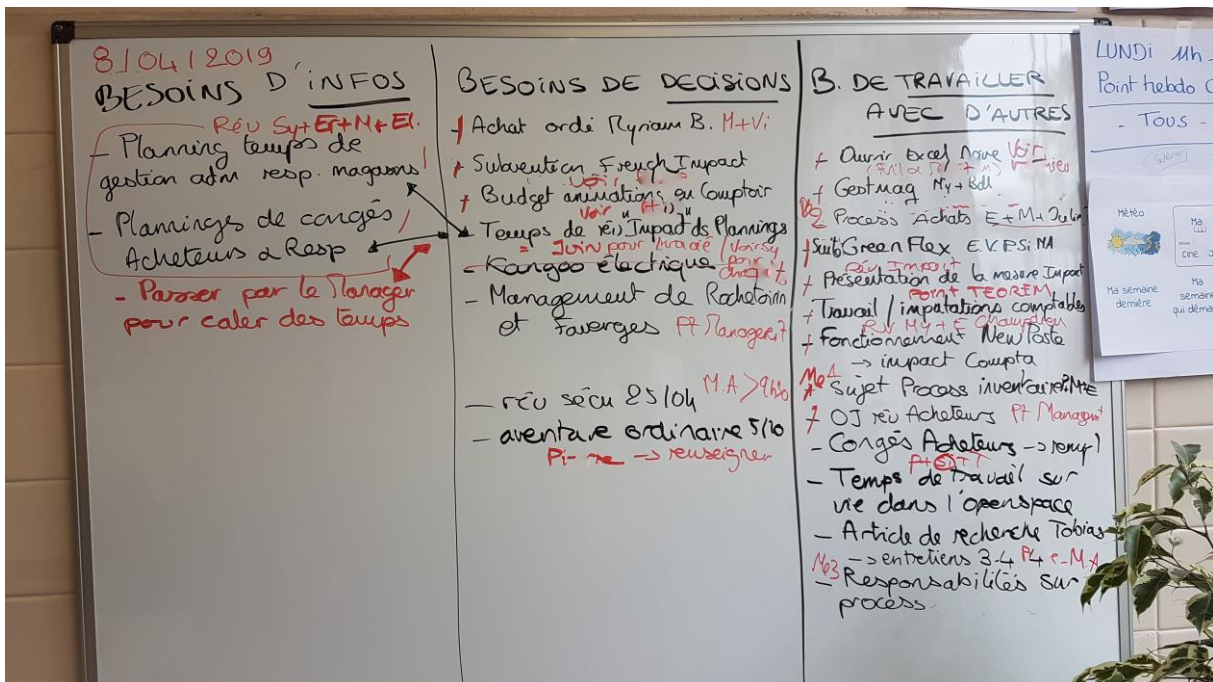 8/04/2019
BESOINS D'INFOS
Réu Sy+Er+M+El.
- Planning temps de
gestion adm resp. magasins
- Plannings de congés
Acheteurs & Resp
- Passer par le Manager
pour caler des temps
BESOINS DE DECISIONS
Achat ordi Myriam B. M+Vi
Subvention French Impact
Budget animations en Comptoir
Temps de réu "Impact" ds Plannings
= Juin pour / Voir Sy
pour
- Kangoo électrique
- Management de Rochetoirin
et Faverges Pt Management
- réu sécu 25/04 M.A > 9h30
- aventure ordinaire 5/10
→ renseigner
B. DE TRAVAILLER
AVEC D'AUTRES
Ouvrir Excel Voir
Gestmag My + Bdl
Process Achats E+M+Julin
Suite GreenFlex E.V.P.Si MA
Réu Impact
Présentation de la mesure Impact
Point TEOREM
Travail / imputations comptables
RV My + E
Fonctionnement New Poste
→ impact Compta
Me1
Sujet Process inventaire
OJ réu Acheteurs Pt Managemt
- Congés Acheteurs → rempl
- Temps de travail sur
vie dans l'openspace
- Article de recherche Tobias
→ entretiens 3-4
Me3
- Responsabilités sur
process
LUNDI 11h
Point hebdo
- TOUS -
Météo
Ma semaine
dernière
Ma
semaine
qui déma